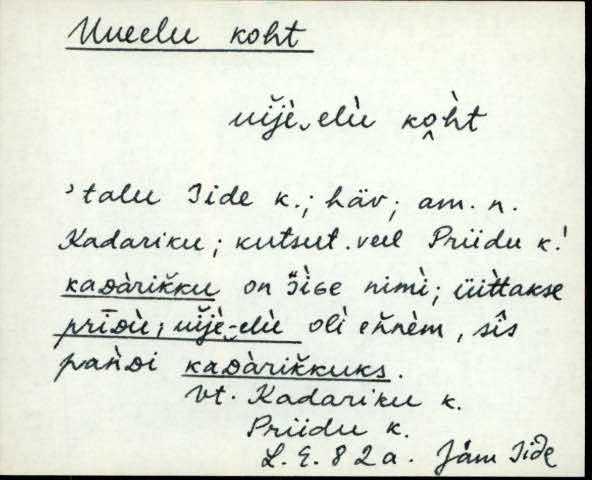 Uueelu koht
uǐjè‿elù ko̭h̀t
'talu Iide k.; häv; am. n.
Kadariku; kutsut. veel Priidu k.'
kaᴅàrǐkku on īìɢe nimì; üìt̀takse
prīᴅù; uǐjè‿elù olì eňnèm, sîs
pan̆ᴅi kaᴅàrǐkkuks.
Vt. Kadariku k.
Priidu k.
L. E. 82 a. Jäm Iide